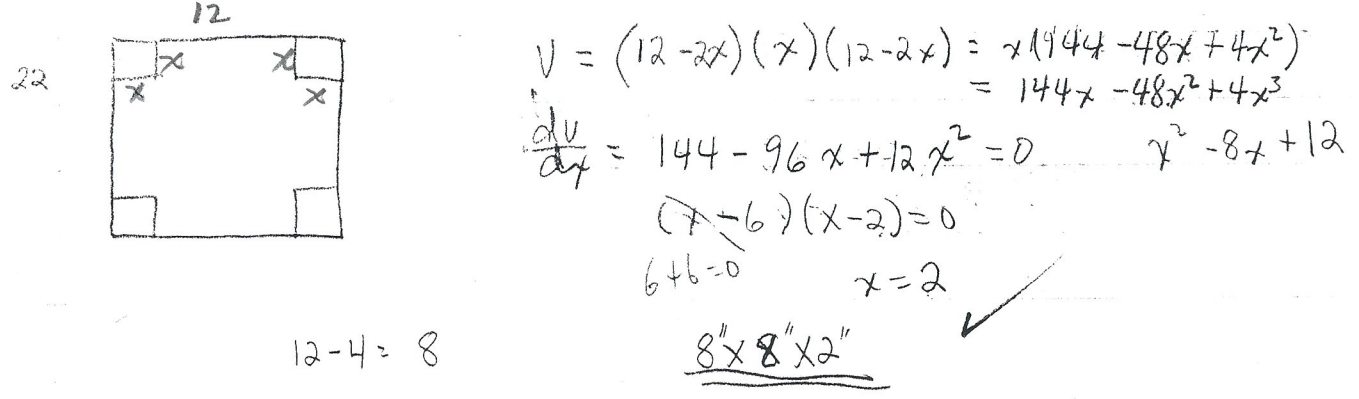 12
22
x x
x x
V = (12 -2x)(x)(12-2x) = x(144 -48x +4x²)
= 144x -48x² +4x³
dv/dx = 144 - 96x + 12x² = 0 x² -8x +12
(x -6)(x-2) = 0
6+6=0 x = 2
12-4 = 8
8" x 8" x 2"